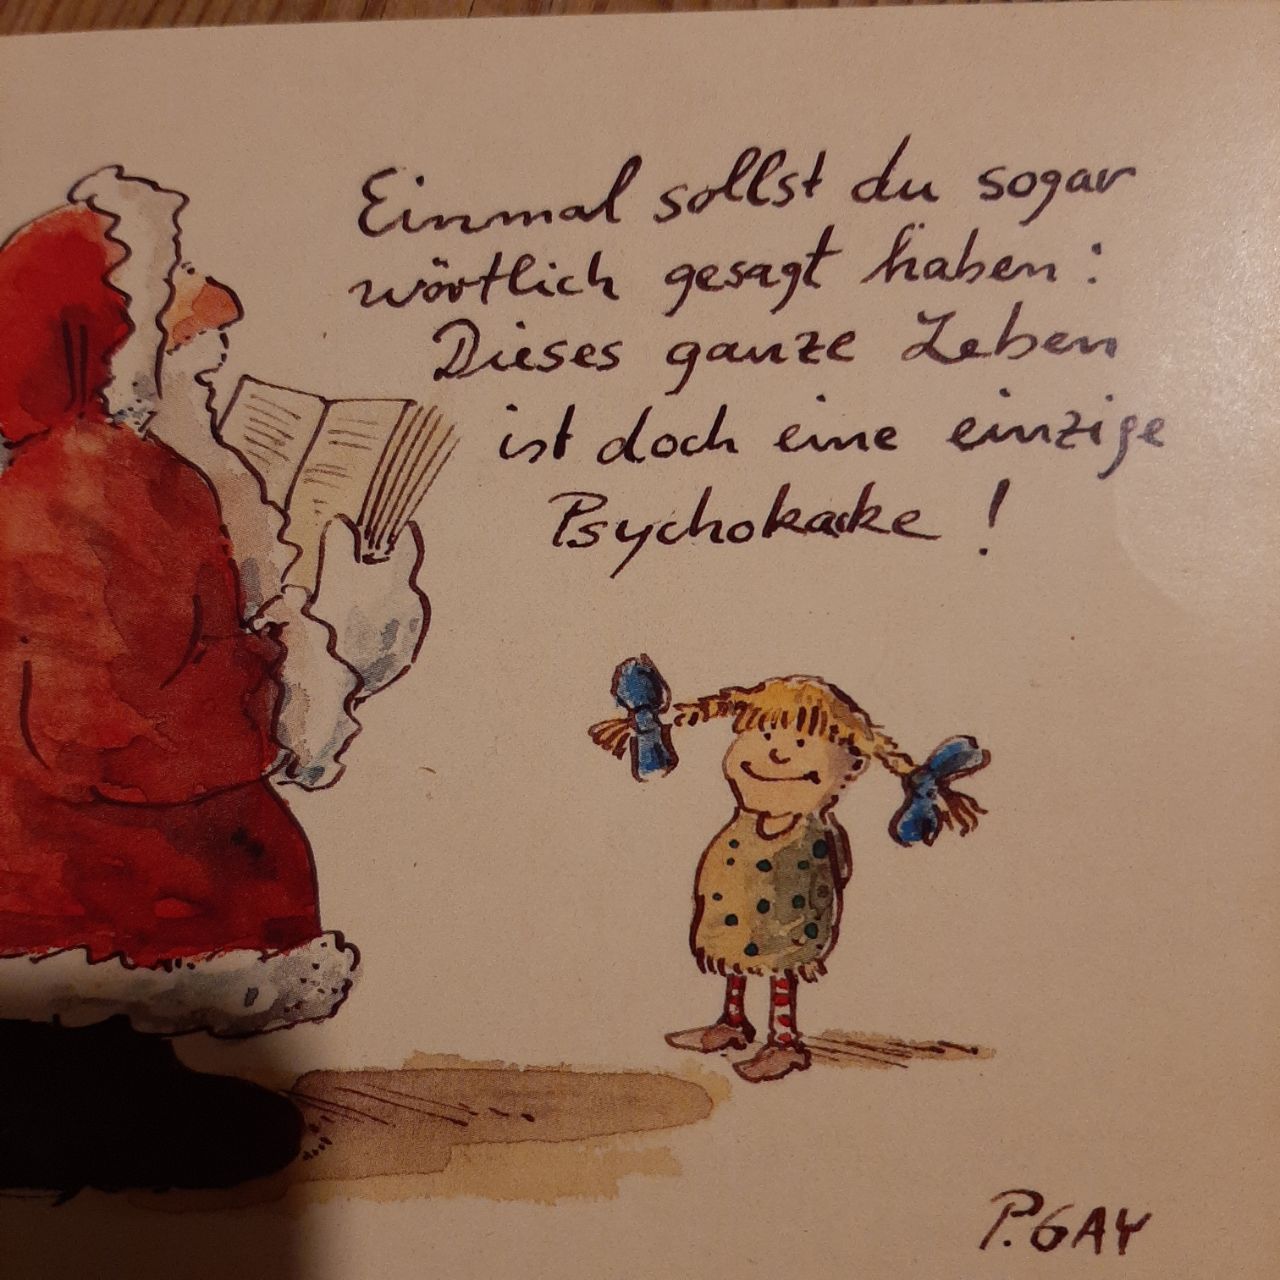 Einmal sollst du sogar
wörtlich gesagt haben:
Dieses ganze Leben
ist doch eine einzige
Psychokacke!
P. GAY